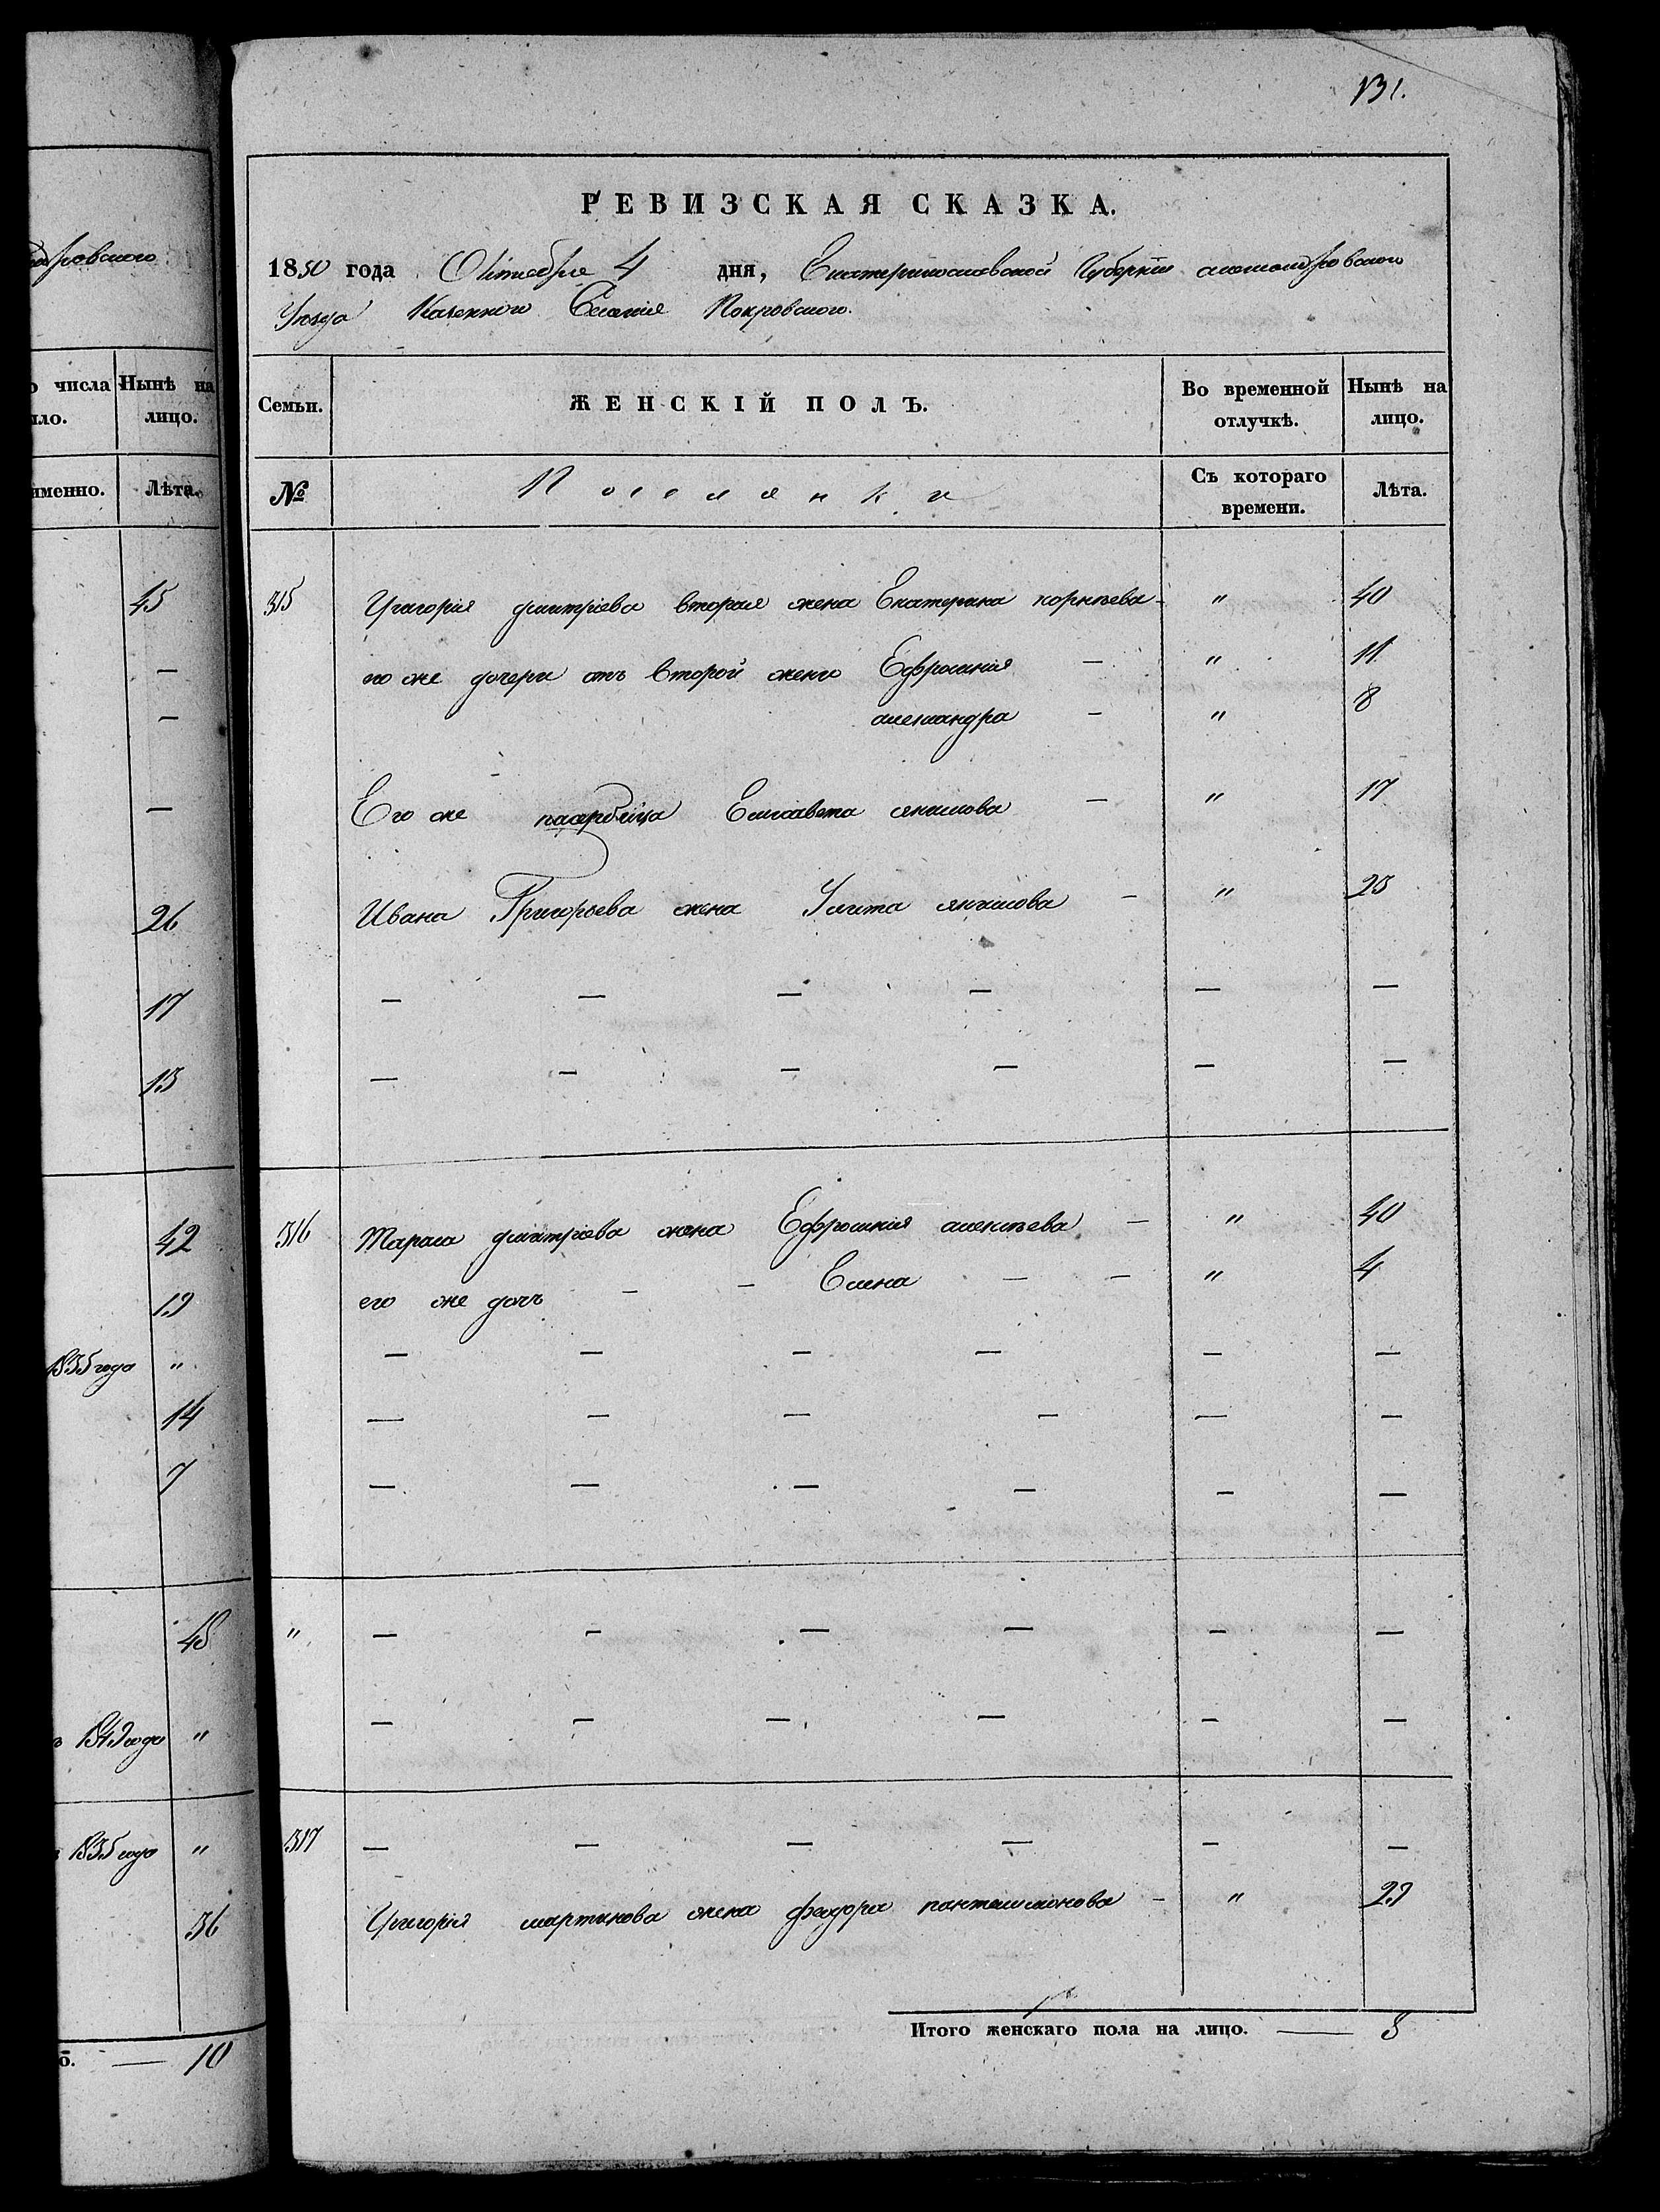 131.
РЕВИЗСКАЯ СКАЗКА.
1850 года Октября 4 дня, Екатеринославской Губерніи александровскаго
Уезда Казеннаго Селенія Покровскаго.
дровского
о числа Нынѣ на
ыло. лицо.
именно. Лѣта.
Семьи. ЖЕНСКІЙ ПОЛЪ. Во временной отлучкѣ. Нынѣ на лицо.
№ Поселянки Съ котораго времени. Лѣта.
45
—
—
—
26
17
13
42
19
1835 года "
14
7
48
1849 года "
1835 года "
36
о. — 10
315 Григорія дмитріева вторая жена Екатерина корнѣева - " 40
его же дочери отъ второй жены Ефросинія — " 11
александра — " 8
Его же Елисавета якимова — " 17
Ивана Григорьева жена Улита якимова — " 23
— — — — — —
— — — — — —
316 Тараса дмитріева жена Ефросинія алексѣева — " 40
его же дочь — — Елена — — " 4
— — — — — —
— — — — — —
— — — — — —
" — — — — — —
— — — — — —
317 — — — — — —
Григорія мартинова жена феодора пантелимонова - " 29
Итого женскаго пола на лицо. — 8